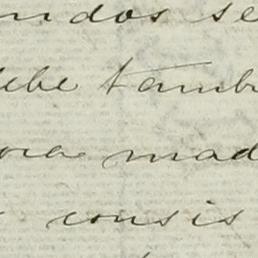 ndos se
lebe tamb
ora mad
consis